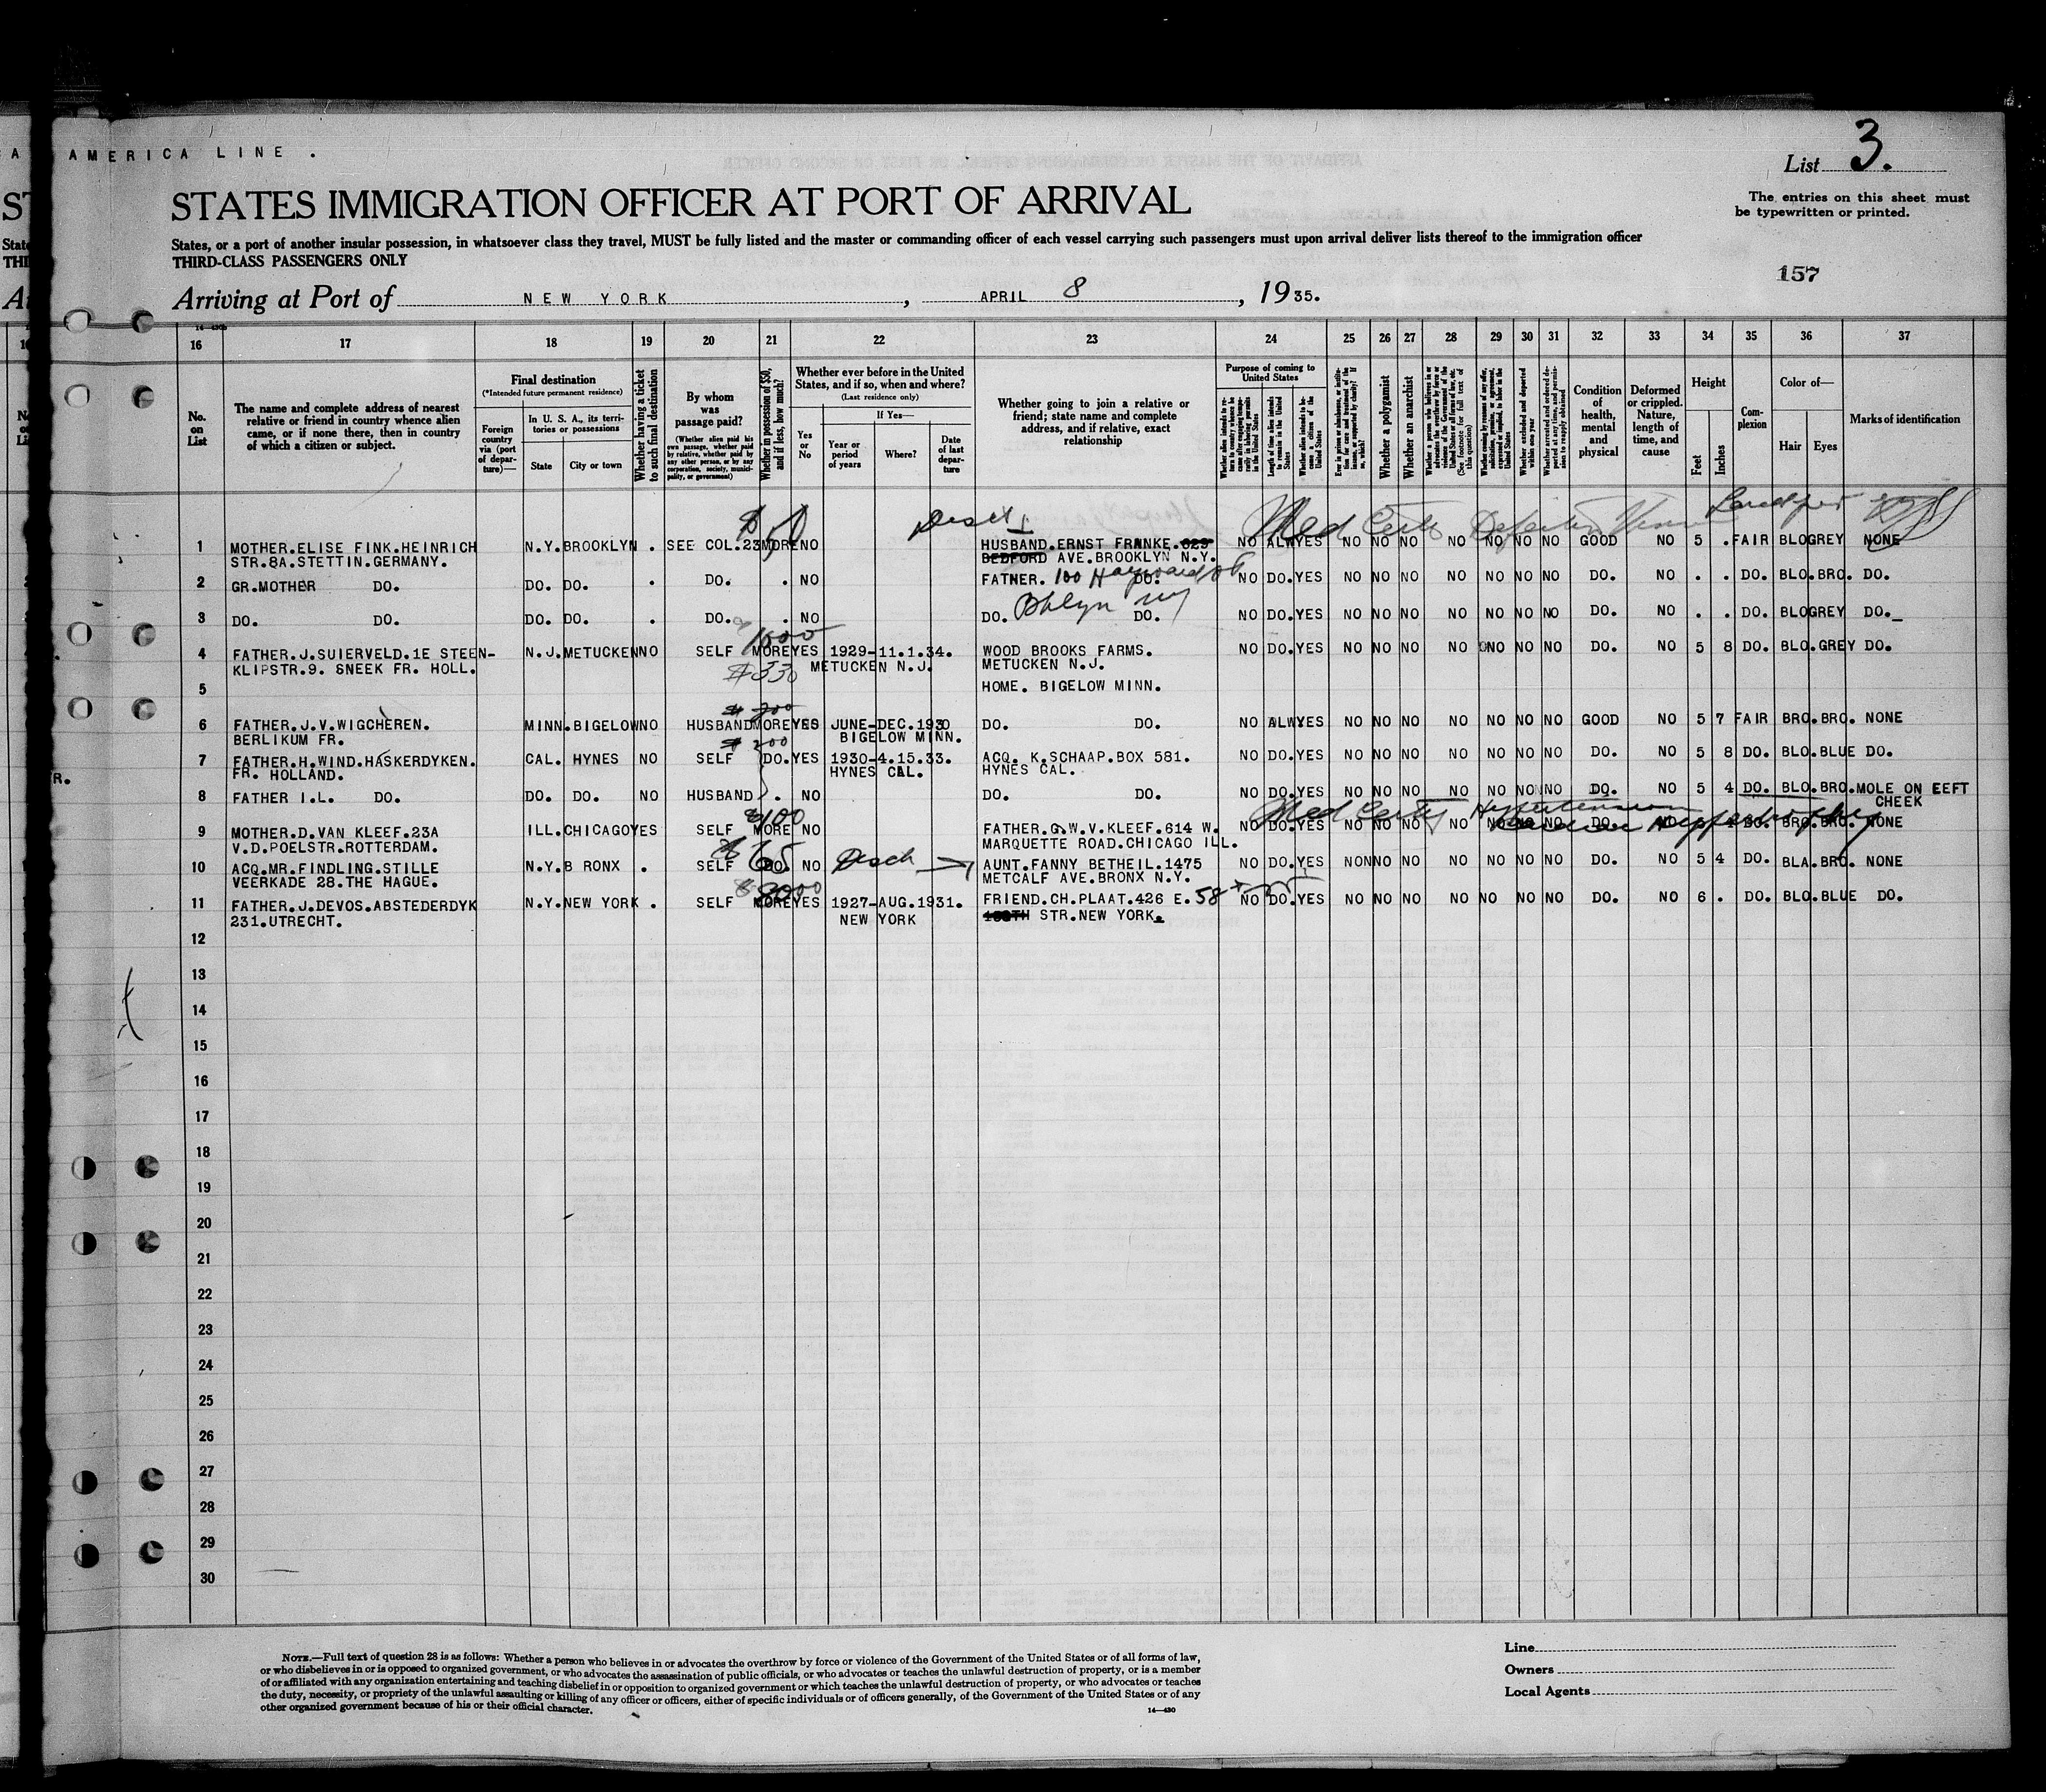 A AMERICA LINE .
List 3.
STATES IMMIGRATION OFFICER AT PORT OF ARRIVAL
The entries on this sheet must
be typewritten or printed.
States, or a port of another insular possession, in whatsoever class they travel, MUST be fully listed and the master or commanding officer of each vessel carrying such passengers must upon arrival deliver lists thereof to the immigration officer
THIRD-CLASS PASSENGERS ONLY
157
Arriving at Port of NEW YORK , APRIL 8 , 1935.
14-430b
16 17 18 19 20 21 22 23 24 25 26 27 28 29 30 31 32 33 34 35 36 37
No. on List
The name and complete address of nearest
relative or friend in country whence alien
came, or if none there, then in country
of which a citizen or subject.
Final destination
(*Intended future permanent residence)
Foreign country via (port of depar-ture)—
In U. S. A., its terri-
tories or possessions
State City or town
Whether having a ticket to such final destination
By whom was passage paid?
(Whether alien paid his own passage, whether paid by relative, whether paid by any other person, or by any corporation, society, munici-pality, or government)
Whether in possession of $50, and if less, how much?
Whether ever before in the United
States, and if so, when and where?
(Last residence only)
Yes or No
If Yes—
Year or period of years Where? Date of last depar-ture
Whether going to join a relative or
friend; state name and complete
address, and if relative, exact
relationship
Purpose of coming to United States
Length of time alien intends to remain in the United States
Whether alien intends to be-come a citizen of the United States
Whether a polygamist
Whether an anarchist
Whether excluded and deported within one year
Condition of health, mental and physical
Deformed or crippled. Nature, length of time, and cause
Height
Feet Inches
Com-plexion
Color of—
Hair Eyes
Marks of identification
Disch
Med Cert
1 MOTHER.ELISE FINK.HEINRICH N.Y. BROOKLYN . SEE COL.23 MORE NO HUSBAND.ERNST FRANKE.629 NO ALW YES NO NO NO NO NO NO NO GOOD NO 5 . FAIR BLO GREY NONE
STR.8A.STETTIN.GERMANY. BEDFORD AVE.BROOKLYN N.Y.
2 GR.MOTHER DO. DO. DO. . DO. . NO FATHER. 100 Hayward DO. NO DO. YES NO NO NO NO NO NO NO DO. NO . . DO. BLO. BRO. DO.
Bklyn NY
3 DO. DO. DO. DO. . DO. . NO DO. DO. NO DO. YES NO NO NO NO NO NO NO DO. NO . . DO. BLO GREY DO.
1000
4 FATHER.J.SUIERVELD.1E STEEN- N.J. METUCKEN NO SELF MORE YES 1929-11.1.34. WOOD BROOKS FARMS. NO DO. YES NO NO NO NO NO NO NO DO. NO 5 8 DO. BLO. GREY DO.
KLIPSTR.9. SNEEK FR. HOLL. $330 METUCKEN N.J. METUCKEN N.J.
5 HOME. BIGELOW MINN.
6 FATHER.J.V.WIGCHEREN. MINN. BIGELOW NO HUSBAND MORE YES JUNE-DEC.1930 DO. DO. NO ALW YES NO NO NO NO NO NO NO GOOD NO 5 7 FAIR BRO. BRO. NONE
BERLIKUM FR. BIGELOW MINN.
$ 200
7 FATHER.H.WIND.HASKERDYKEN. CAL. HYNES NO SELF DO. YES 1930-4.15.33. ACQ. K.SCHAAP.BOX 581. NO DO. YES NO NO NO NO NO NO NO DO. NO 5 8 DO. BLO. BLUE DO.
FR. HOLLAND. HYNES CAL. HYNES CAL.
R.
8 FATHER I.L. DO. DO. DO. NO HUSBAND . NO DO. DO. NO DO. YES NO NO NO NO NO NO NO DO. NO 5 4 DO. BLO. BRO. MOLE ON EEFT
CHEEK
$100 Med Cert Hypertension
9 MOTHER.D.VAN KLEEF.23A ILL. CHICAGO YES SELF MORE NO FATHER.G.W.V.KLEEF.614 W. NO DO. YES NO NO NO NO NO NO NO DO. NO DO. BRO. BRO. NONE
V.D.POELSTR.ROTTERDAM. MARQUETTE ROAD.CHICAGO ILL.
$ 65
10 ACQ.MR.FINDLING.STILLE N.Y. B RONX . SELF DO. NO Disch AUNT.FANNY BETHEIL.1475 NO DO. YES NO NO NO NO NO NO NO DO. NO 5 4 DO. BLA. BRO. NONE
VEERKADE 28.THE HAGUE. METCALF AVE.BRONX N.Y.
11 FATHER.J.DEVOS.ABSTEDERDYK N.Y. NEW YORK . SELF MORE YES 1927-AUG.1931. FRIEND.CH.PLAAT.426 E. 58 NO DO. YES NO NO NO NO NO NO NO DO. NO 6 . DO. BLO. BLUE DO.
231.UTRECHT. NEW YORK STR.NEW YORK.
12
13
14
15
16
17
18
19
20
21
22
23
24
25
26
27
28
29
30
NOTE.—Full text of question 28 is as follows: Whether a person who believes in or advocates the overthrow by force or violence of the Government of the United States or of all forms of law,
or who disbelieves in or is opposed to organized government, or who advocates the assassination of public officials, or who advocates or teaches the unlawful destruction of property, or is a member
of or affiliated with any organization entertaining and teaching disbelief in or opposition to organized government or which teaches the unlawful destruction of property, or who advocates or teaches
the duty, necessity, or propriety of the unlawful assaulting or killing of any officer or officers, either of specific individuals or of officers generally, of the Government of the United States or of any
other organized government because of his or their official character.
14—430
Line
Owners
Local Agents